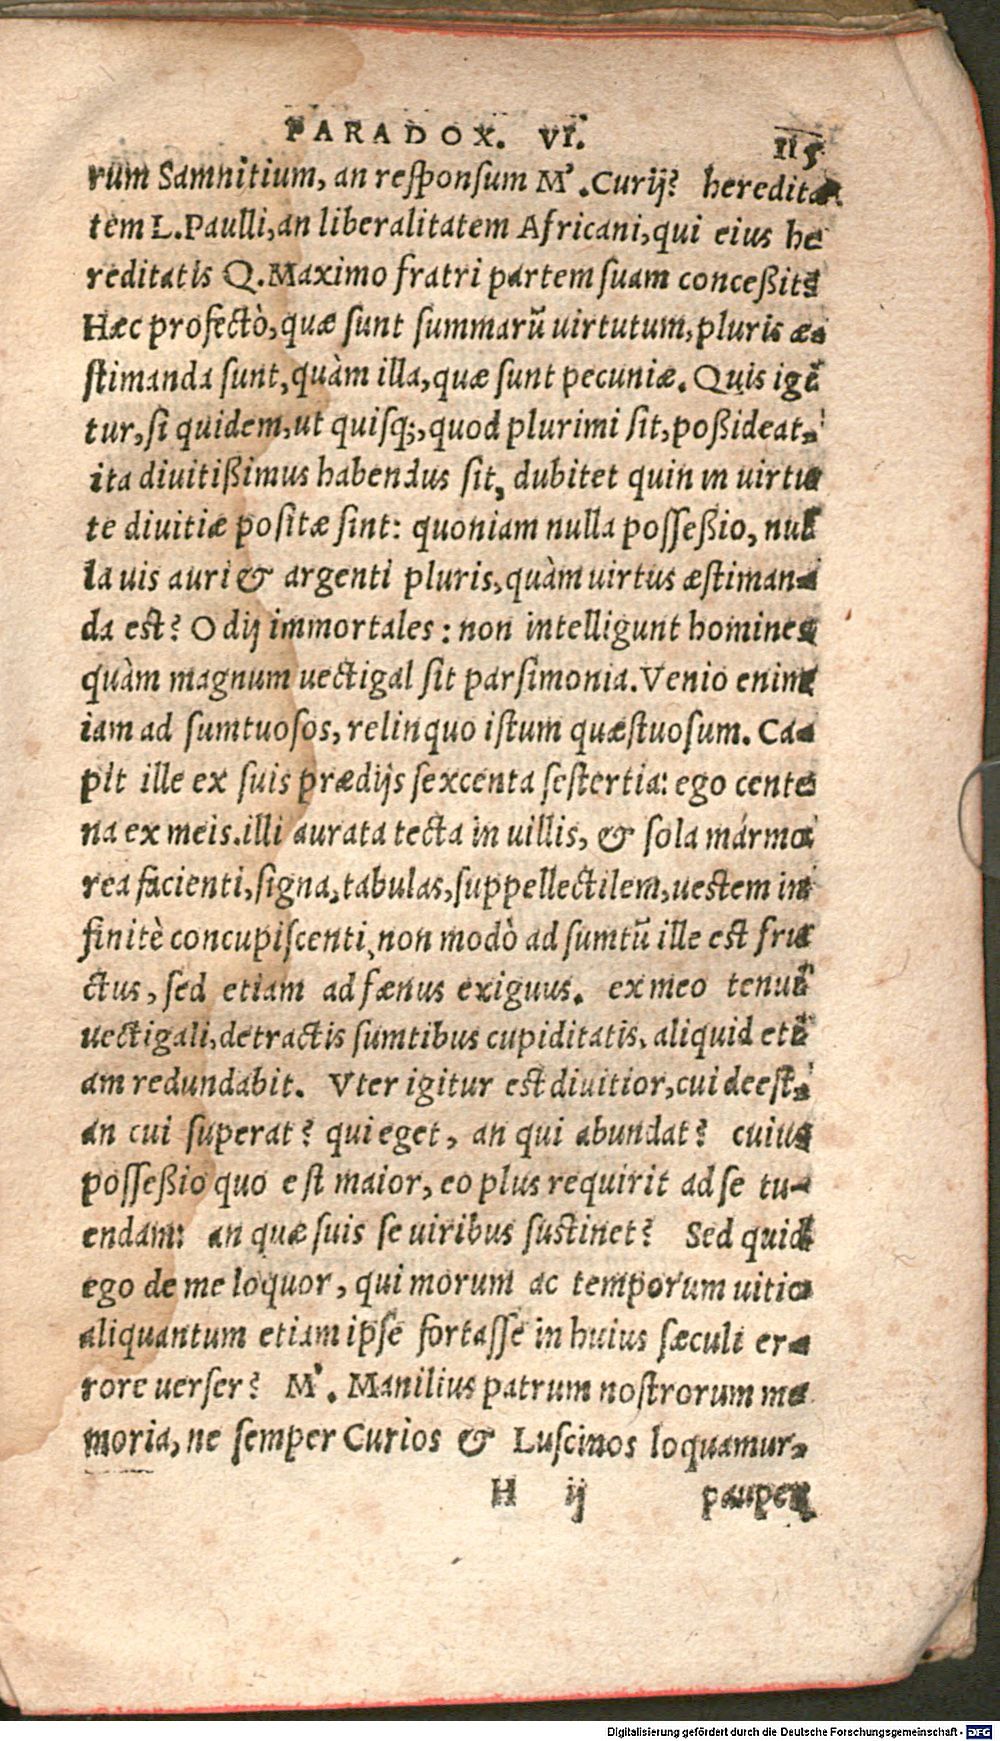 PARADOX. VI. 115
rum Samnitium, an responsum M'. Curij? heredita-
tem L. Paulli, an liberalitatem Africani, qui eius he
reditatis Q. Maximo fratri partem suam conceßit?
Hæc profectò, quæ sunt summarũ uirtutum, pluris æ-
stimanda sunt, quàm illa, quæ sunt pecuniæ. Quis igi
tur, si quidem, ut quisq;, quod plurimi sit, poßideat,
ita diuitißimus habendus sit, dubitet quin in uirtu
te diuitiæ positæ sint: quoniam nulla posseßio, nul
la uis auri & argenti pluris, quàm uirtus æstiman-
da est? O dij immortales: non intelligunt homines
quàm magnum uectigal sit parsimonia. Venio enim
iam ad sumtuosos, relinquo istum quæstuosum. Ca-
pit ille ex suis prædijs sexcenta sestertia: ego cente
na ex meis. illi aurata tecta in uillis, & sola marmo
rea facienti, signa, tabulas, suppellectilem, uestem in
finitè concupiscenti, non modò ad sumtũ ille est fru
ctus, sed etiam ad fænus exiguus. ex meo tenui
uectigali, detractis sumtibus cupiditatis, aliquid eti
am redundabit. Vter igitur est diuitior, cui deest,
an cui superat? qui eget, an qui abundat? cuius
posseßio quo est maior, eo plus requirit ad se tu-
endam: an quæ suis se uiribus sustinet? Sed quid
ego de me loquor, qui morum ac temporum uitio
aliquantum etiam ipse fortasse in huius sæculi er-
rore uerser? M'. Manilius patrum nostrorum me
moria, ne semper Curios & Luscinos loquamur,
H ij pauper
Digitalisierung gefördert durch die Deutsche Forschungsgemeinschaft - DFG